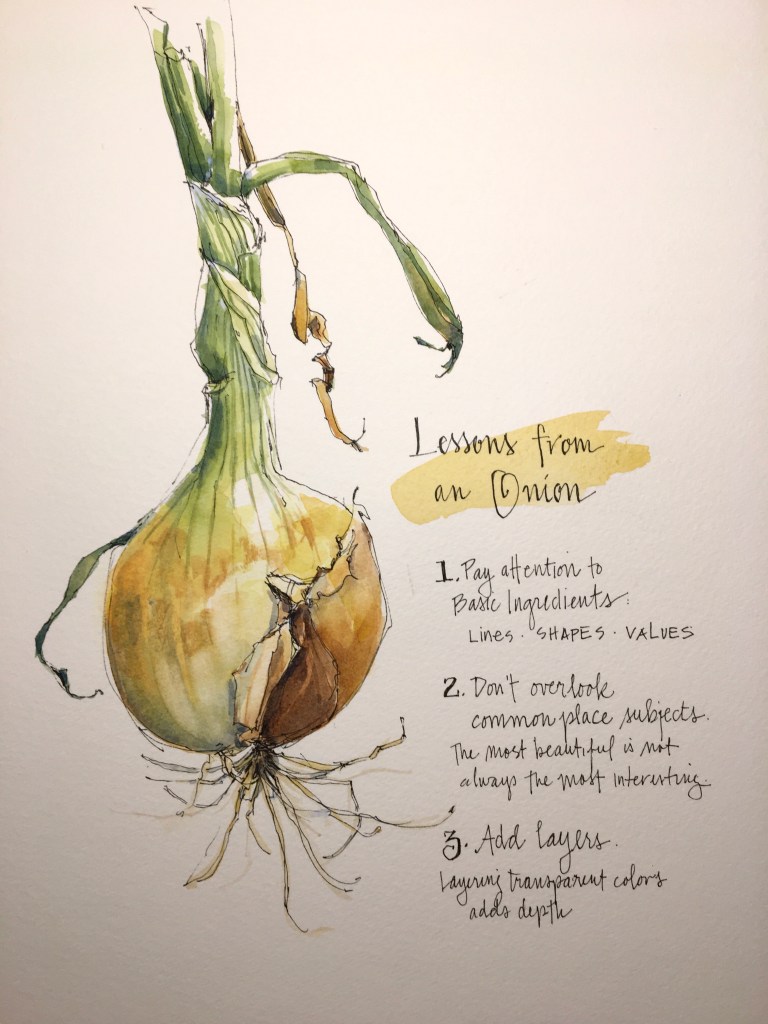 Lessons from
an Onion
1. Pay attention to
Basic Ingredients:
Lines · SHAPES · VALUES
2. Don't overlook
common place subjects.
The most beautiful is not
always the most interesting.
3. Add layers.
Layering transparent colors
adds depth